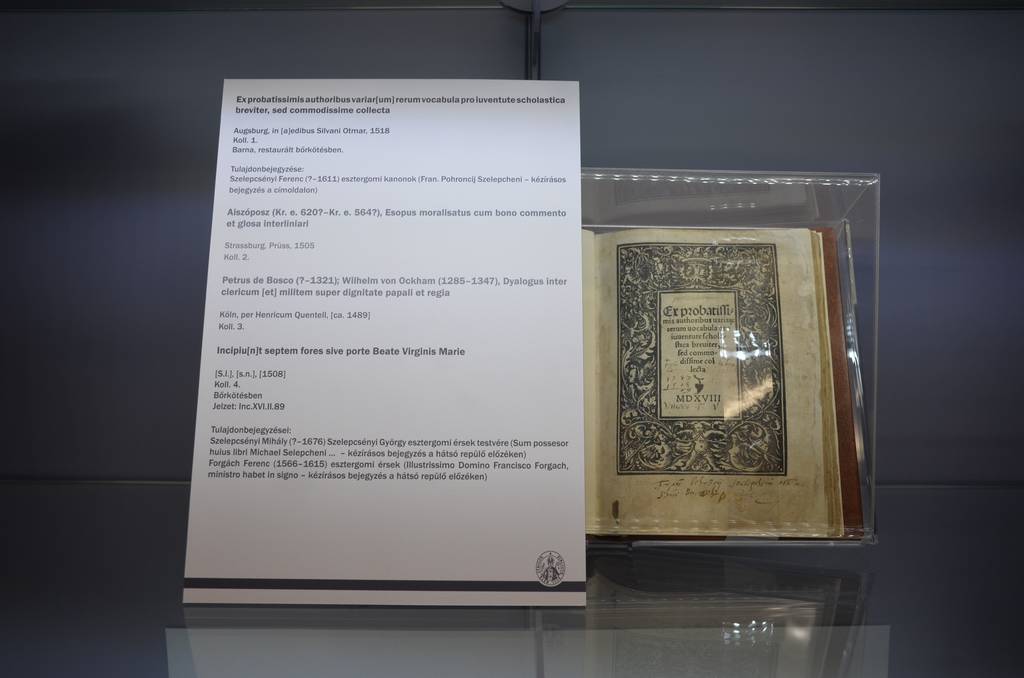 Ex probatissimis authoribus variar[um] rerum vocabula pro iuventute scholastica
breviter, sed commodissime collecta
Augsburg, in [a]edibus Silvani Otmar, 1518
Koll. 1.
Barna, restaurált bőrkötésben.
Tulajdonbejegyzése:
Szelepcsényi Ferenc (?–1611) esztergomi kanonok (Fran. Pohroncij Szelepcheni – kézírásos
bejegyzés a címoldalon)
Aiszóposz (Kr. e. 620?–Kr. e. 564?), Esopus moralisatus cum bono commento
et glosa interliniari
Strassburg. Prüss, 1505
Koll. 2.
Petrus de Bosco (?–1321); Wilhelm von Ockham (1285–1347), Dyalogus inter
clericum [et] militem super dignitate papali et regia
Köln, per Henricum Quentell, [ca. 1489]
Koll. 3.
Incipiu[n]t septem fores sive porte Beate Virginis Marie
[S.l.], [s.n.], [1508]
Koll. 4.
Bőrkötésben
Jelzet: Inc.XVI.II.89
Tulajdonbejegyzései:
Szelepcsényi Mihály (?–1676) Szelepcsényi György esztergomi érsek testvére (Sum possesor
huius libri Michael Selepcheni ... – kézírásos bejegyzés a hátsó repülő előzéken)
Forgách Ferenc (1566–1615) esztergomi érsek (Illustrissimo Domino Francisco Forgach,
ministro habet in signo – kézírásos bejegyzés a hátsó repülő előzéken)
Ex probatissi-
mis authoribus variar
rerum vocabula
iuventute schola-
stica breuiter,
sed commo-
dissime col
lecta
MDXVIII